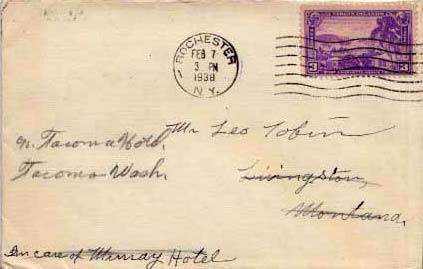 ROCHESTER
FEB 7
3 PM
1938
N.Y.
VIRGIN ISLANDS
3
3
Mr Leo Tobin
Tacoma Hotel,
Tacoma Wash.
Livingston,
Montana,
In care of Murray Hotel